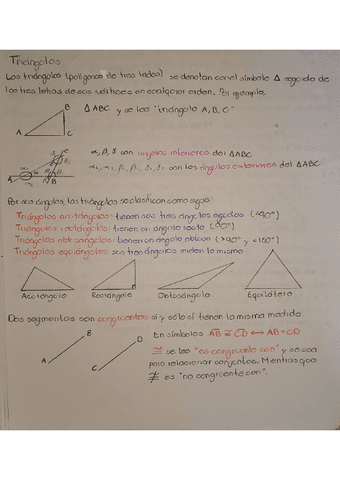 Triángulos
Los triángulos (polígonos de tres lados) se denotan con el símbolo Δ seguido de
las tres letras de sus vértices en cualquier orden. Por ejemplo,
B
Δ ABC y se lee "triángulo A, B, C"
A
C
C
α, β, γ son ángulos interiores del ΔABC
son los ángulos exteriores del ΔABC
A
B
Por sus ángulos, los triángulos se clasifican como sigue:
Triángulos acutángulos: tienen sus tres ángulos agudos (<90°)
Triángulos rectángulos: tienen un ángulo recto (90°)
Triángulos obtusángulos: tienen un ángulo obtuso (>90° y <180°)
Triángulos equiángulos: sus tres ángulos miden lo mismo
Acutángulo Rectángulo Obtusángulo Equilátero
Dos segmentos son congruentes si y sólo si tienen la misma medida.
B
D
En símbolos AB ≅ CD ⟷ AB = CD
A
C
≅ se lee "es congruente con" y se usa
para relacionar conjuntos. Mientras que
≇ es "no congruente con".